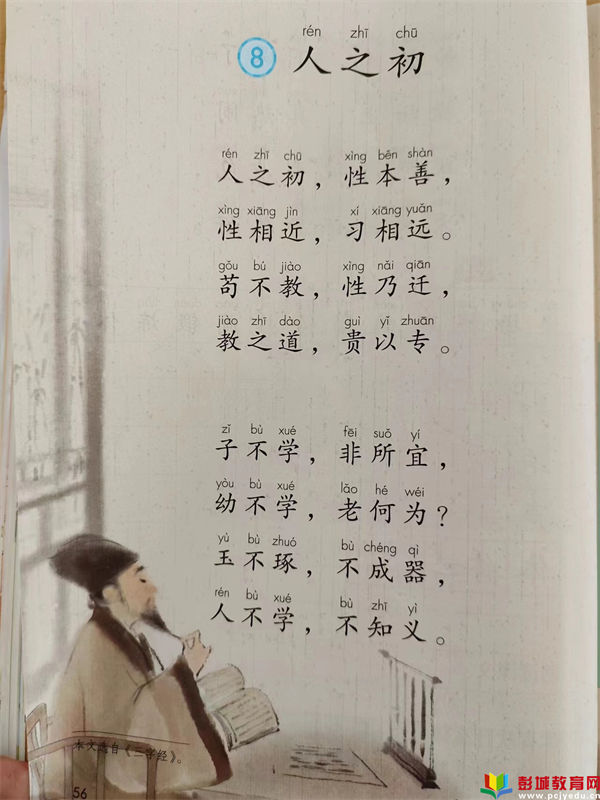 rén zhī chū
8 人之初
rén zhī chū xìng běn shàn
人之初，性本善，
xìng xiāng jìn xí xiāng yuǎn
性相近，习相远。
gǒu bú jiào xìng nǎi qiān
苟不教，性乃迁，
jiào zhī dào guì yǐ zhuān
教之道，贵以专。
zǐ bù xué fēi suǒ yí
子不学，非所宜，
yòu bù xué lǎo hé wéi
幼不学，老何为？
yù bù zhuó bù chéng qì
玉不琢，不成器，
rén bù xué bù zhī yì
人不学，不知义。
本文选自《三字经》。
56
彭城教育网
www.pcjyedu.cn